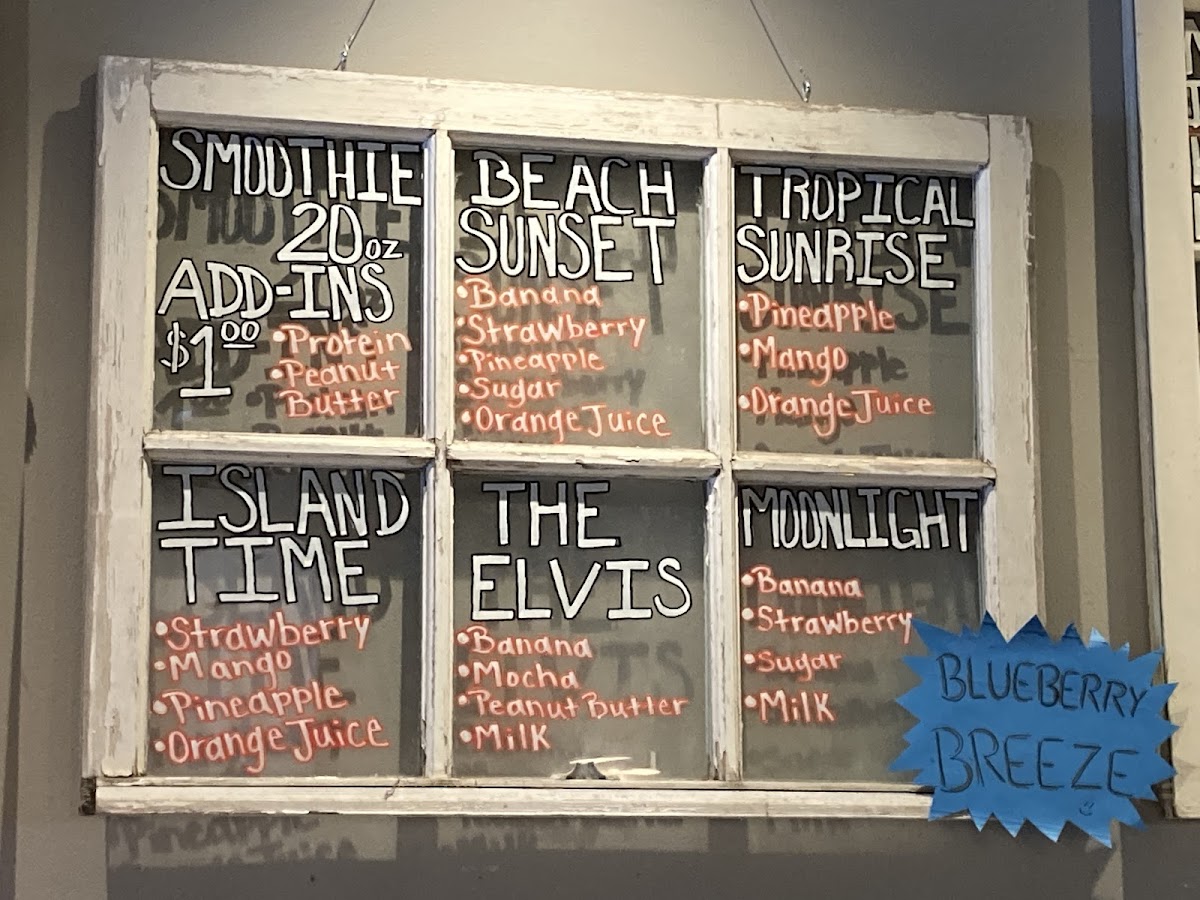 SMOOTHIE
20oz
ADD-INS
$1.00
•Protein
•Peanut
Butter
BEACH
SUNSET
•Banana
•Strawberry
•Pineapple
•Sugar
•Orange Juice
TROPICAL
SUNRISE
•Pineapple
•Mango
•Orange Juice
ISLAND
TIME
•Strawberry
•Mango
•Pineapple
•Orange Juice
THE
ELVIS
•Banana
•Mocha
•Peanut Butter
•Milk
MOONLIGHT
•Banana
•Strawberry
•Sugar
•Milk
BLUEBERRY
BREEZE